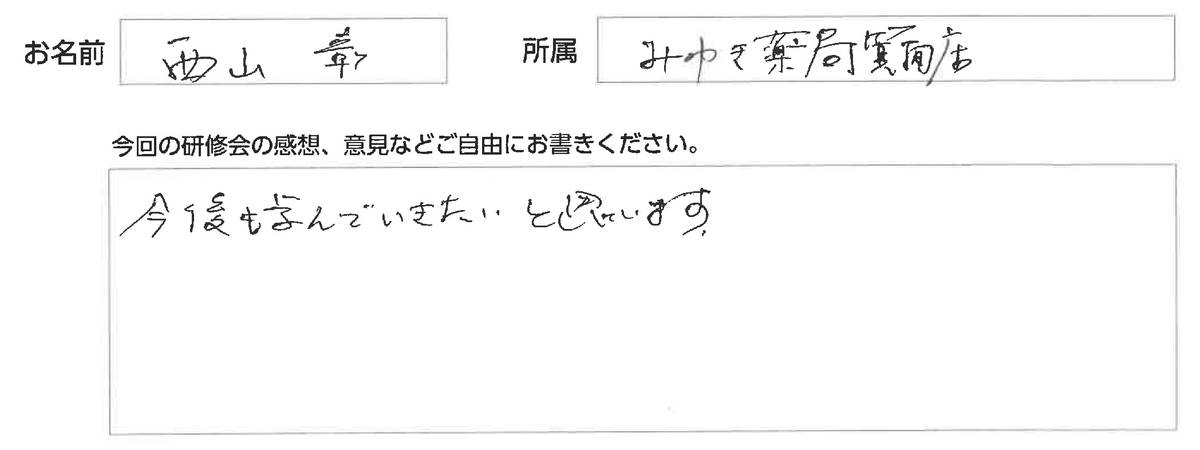 お名前 西山 彰 所属 みゆき薬局箕面店
今回の研修会の感想、意見などご自由にお書きください。
今後も学んでいきたいと思っています。